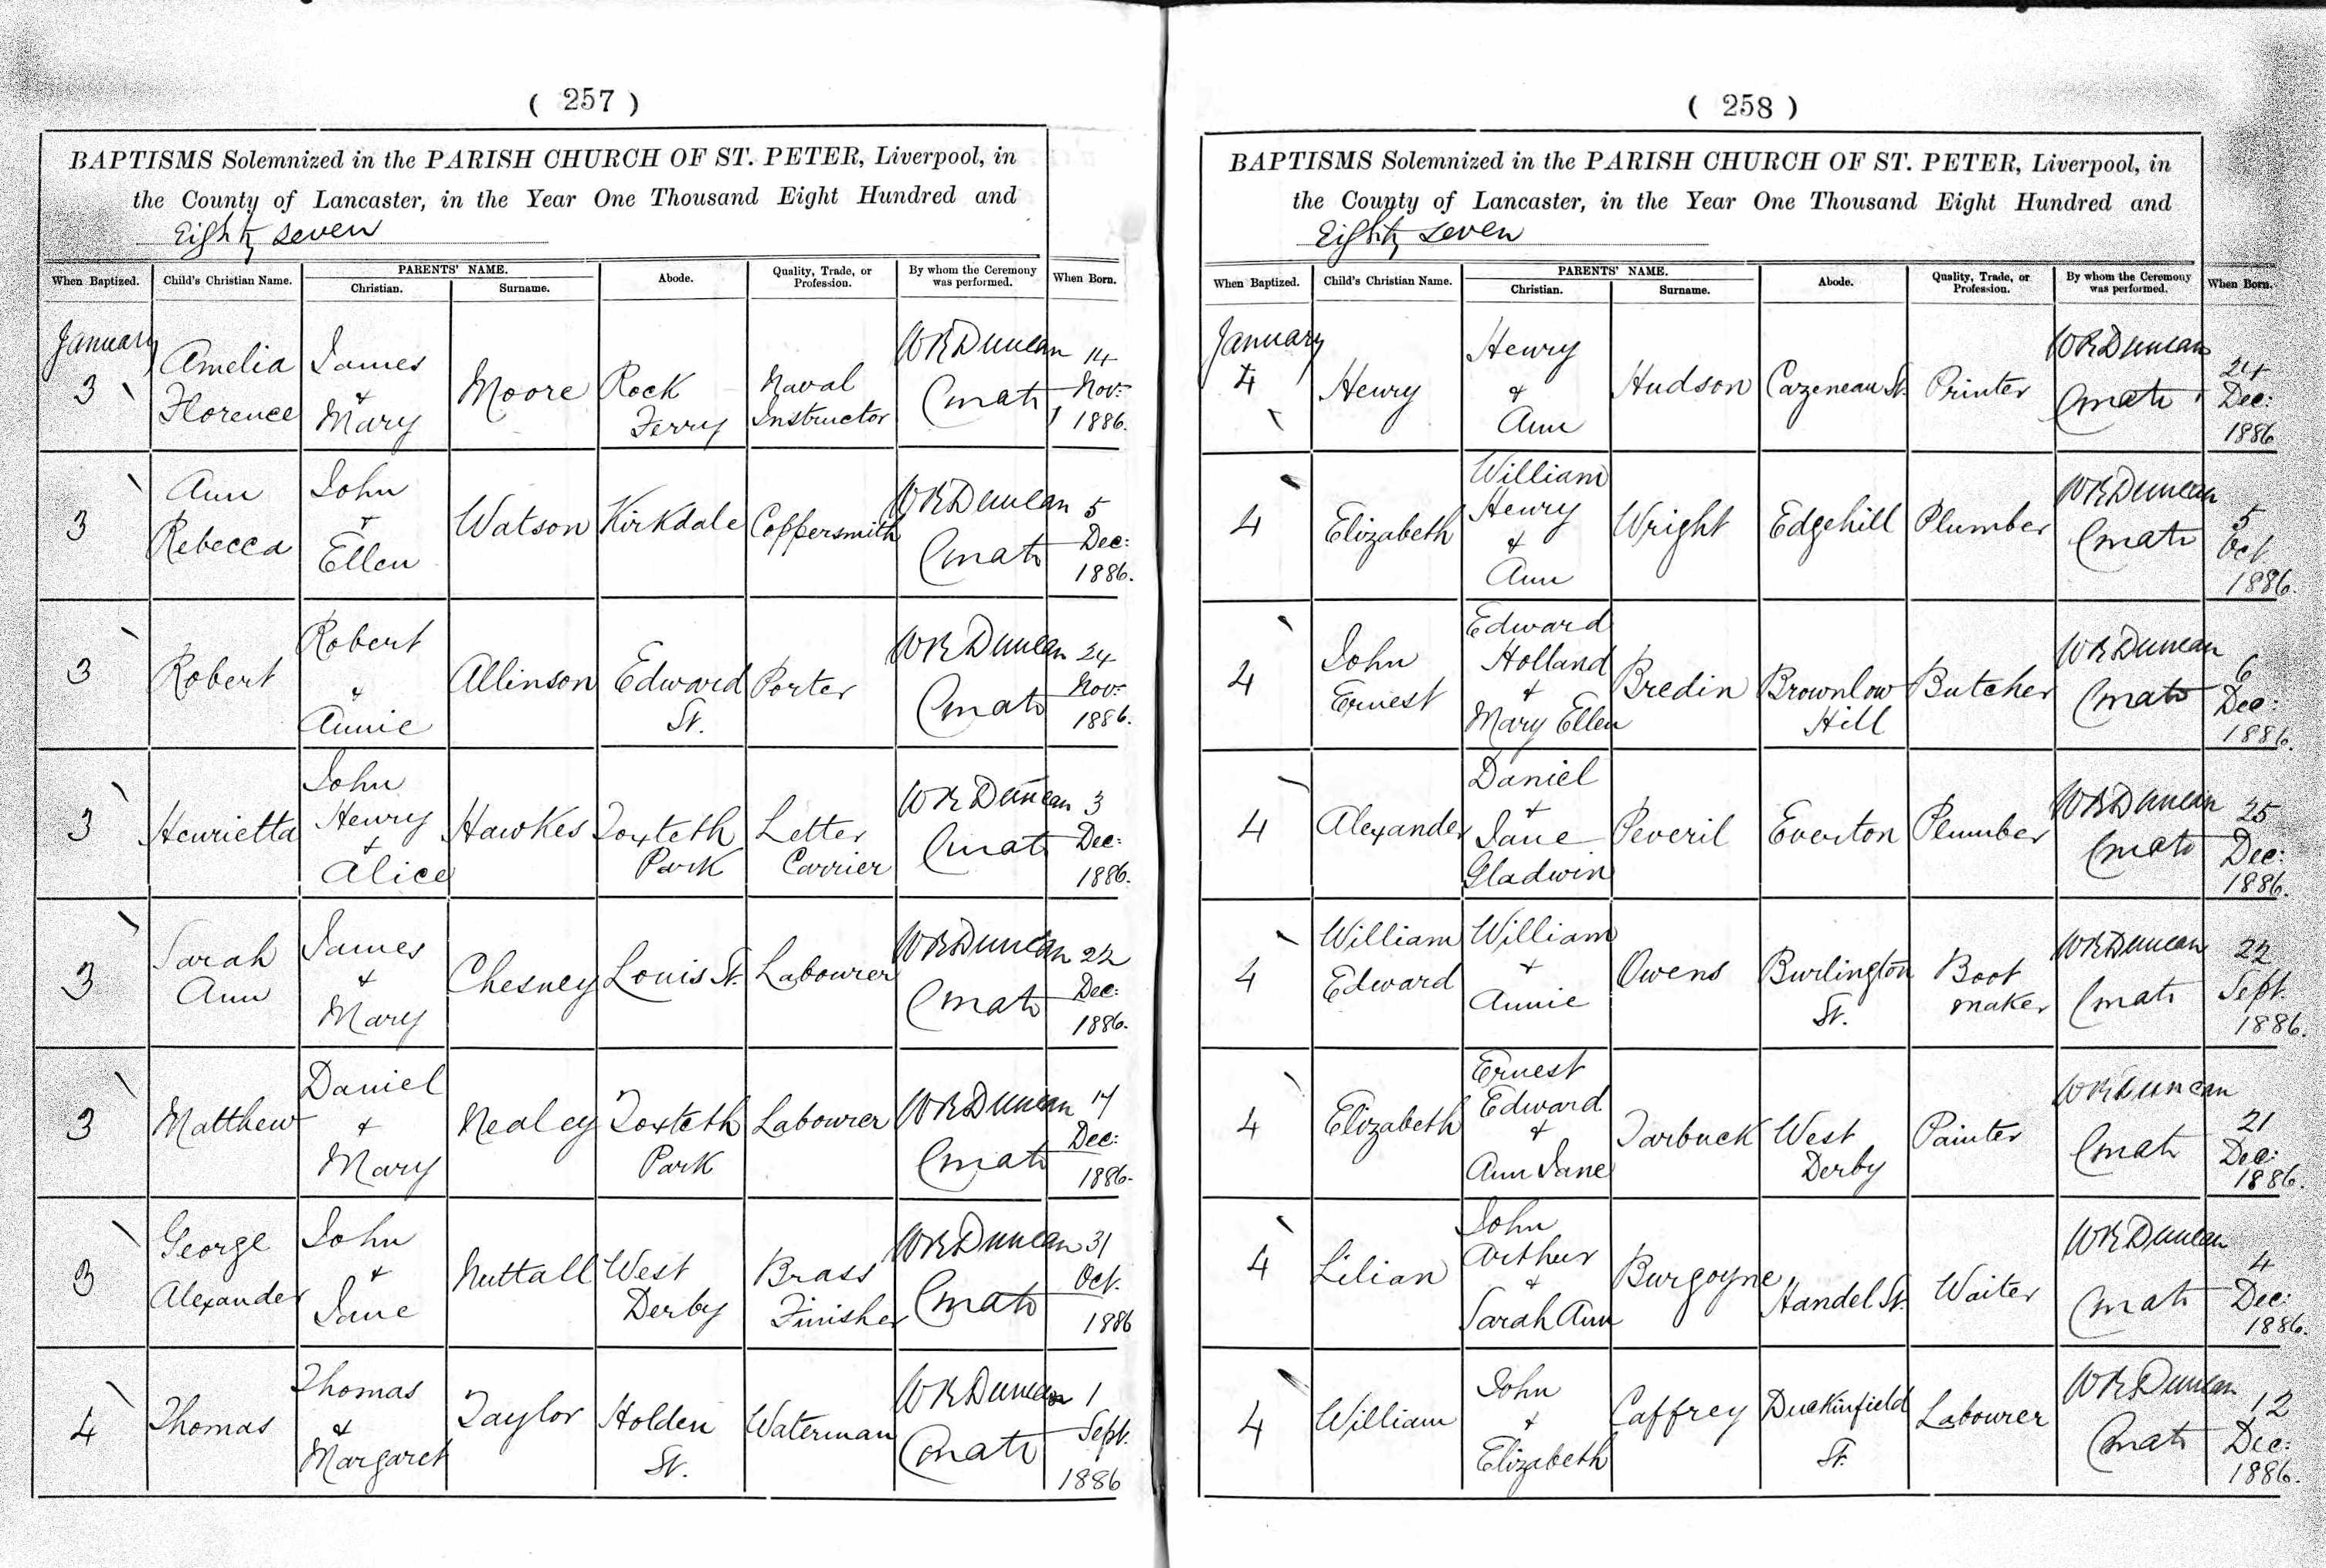 ( 257 )
BAPTISMS Solemnized in the PARISH CHURCH OF ST. PETER, Liverpool, in
the County of Lancaster, in the Year One Thousand Eight Hundred and
Eighty seven
When Baptized. Child's Christian Name. PARENTS' NAME. Christian. Surname. Abode. Quality, Trade, or Profession. By whom the Ceremony was performed. When Born.
January 3 Amelia Florence James & Mary Moore Rock Ferry Naval Instructor W R Duncan Curate 14 Nov: 1886.
3 Ann Rebecca John + Ellen Watson Kirkdale Coppersmith W R Duncan Curate 5 Dec: 1886.
3 Robert Robert & Annie Allinson Edward St. Porter W R Duncan Curate 24 Nov: 1886.
3 Henrietta John Henry + Alice Hawkes Toxteth Park Letter Carrier W R Duncan Curate 3 Dec: 1886.
3 Sarah Ann James & Mary Chesney Louis St. Labourer W R Duncan Curate 22 Dec: 1886.
3 Matthew Daniel & Mary Nealey Toxteth Park Labourer W R Duncan Curate Dec: 1886.
3 George Alexander John & Jane Nuttall West Derby Brass Finisher W R Duncan Curate 31 Oct. 1886
4 Thomas Thomas & Margaret Taylor Holden St. Waterman W R Duncan Curate 1 Sept. 1886
( 258 )
BAPTISMS Solemnized in the PARISH CHURCH OF ST. PETER, Liverpool, in
the County of Lancaster, in the Year One Thousand Eight Hundred and
Eighty seven
When Baptized. Child's Christian Name. PARENTS' NAME. Christian. Surname. Abode. Quality, Trade, or Profession. By whom the Ceremony was performed. When Born.
January 4 Henry Henry & Ann Hudson Cazeneau St. Printer W R Duncan Curate 24 Dec: 1886
4 Elizabeth William Henry & Ann Wright Edgehill Plumber W R Duncan Curate 5 Oct 1886.
4 John Ernest Edward Holland & Mary Ellen Bredin Brownlow Hill Butcher W R Duncan Curate 6 Dec: 1886.
4 Alexander Daniel + Jane Gladwin Peveril Everton Plumber W R Duncan Curate 25 Dec: 1886.
4 William Edward William + Annie Owens Burlington St. Boot maker W R Duncan Curate 22 Sept. 1886.
4 Elizabeth Ernest Edward & Ann Jane Tarbuck West Derby Painter W R Duncan Curate 21 Dec: 1886.
4 Lilian John Arthur & Sarah Ann Burgoyne Handel St. Waiter W R Duncan Curate 4 Dec: 1886.
4 William John + Elizabeth Caffrey Duckinfield St. Labourer W R Duncan Curate 12 Dec: 1886.